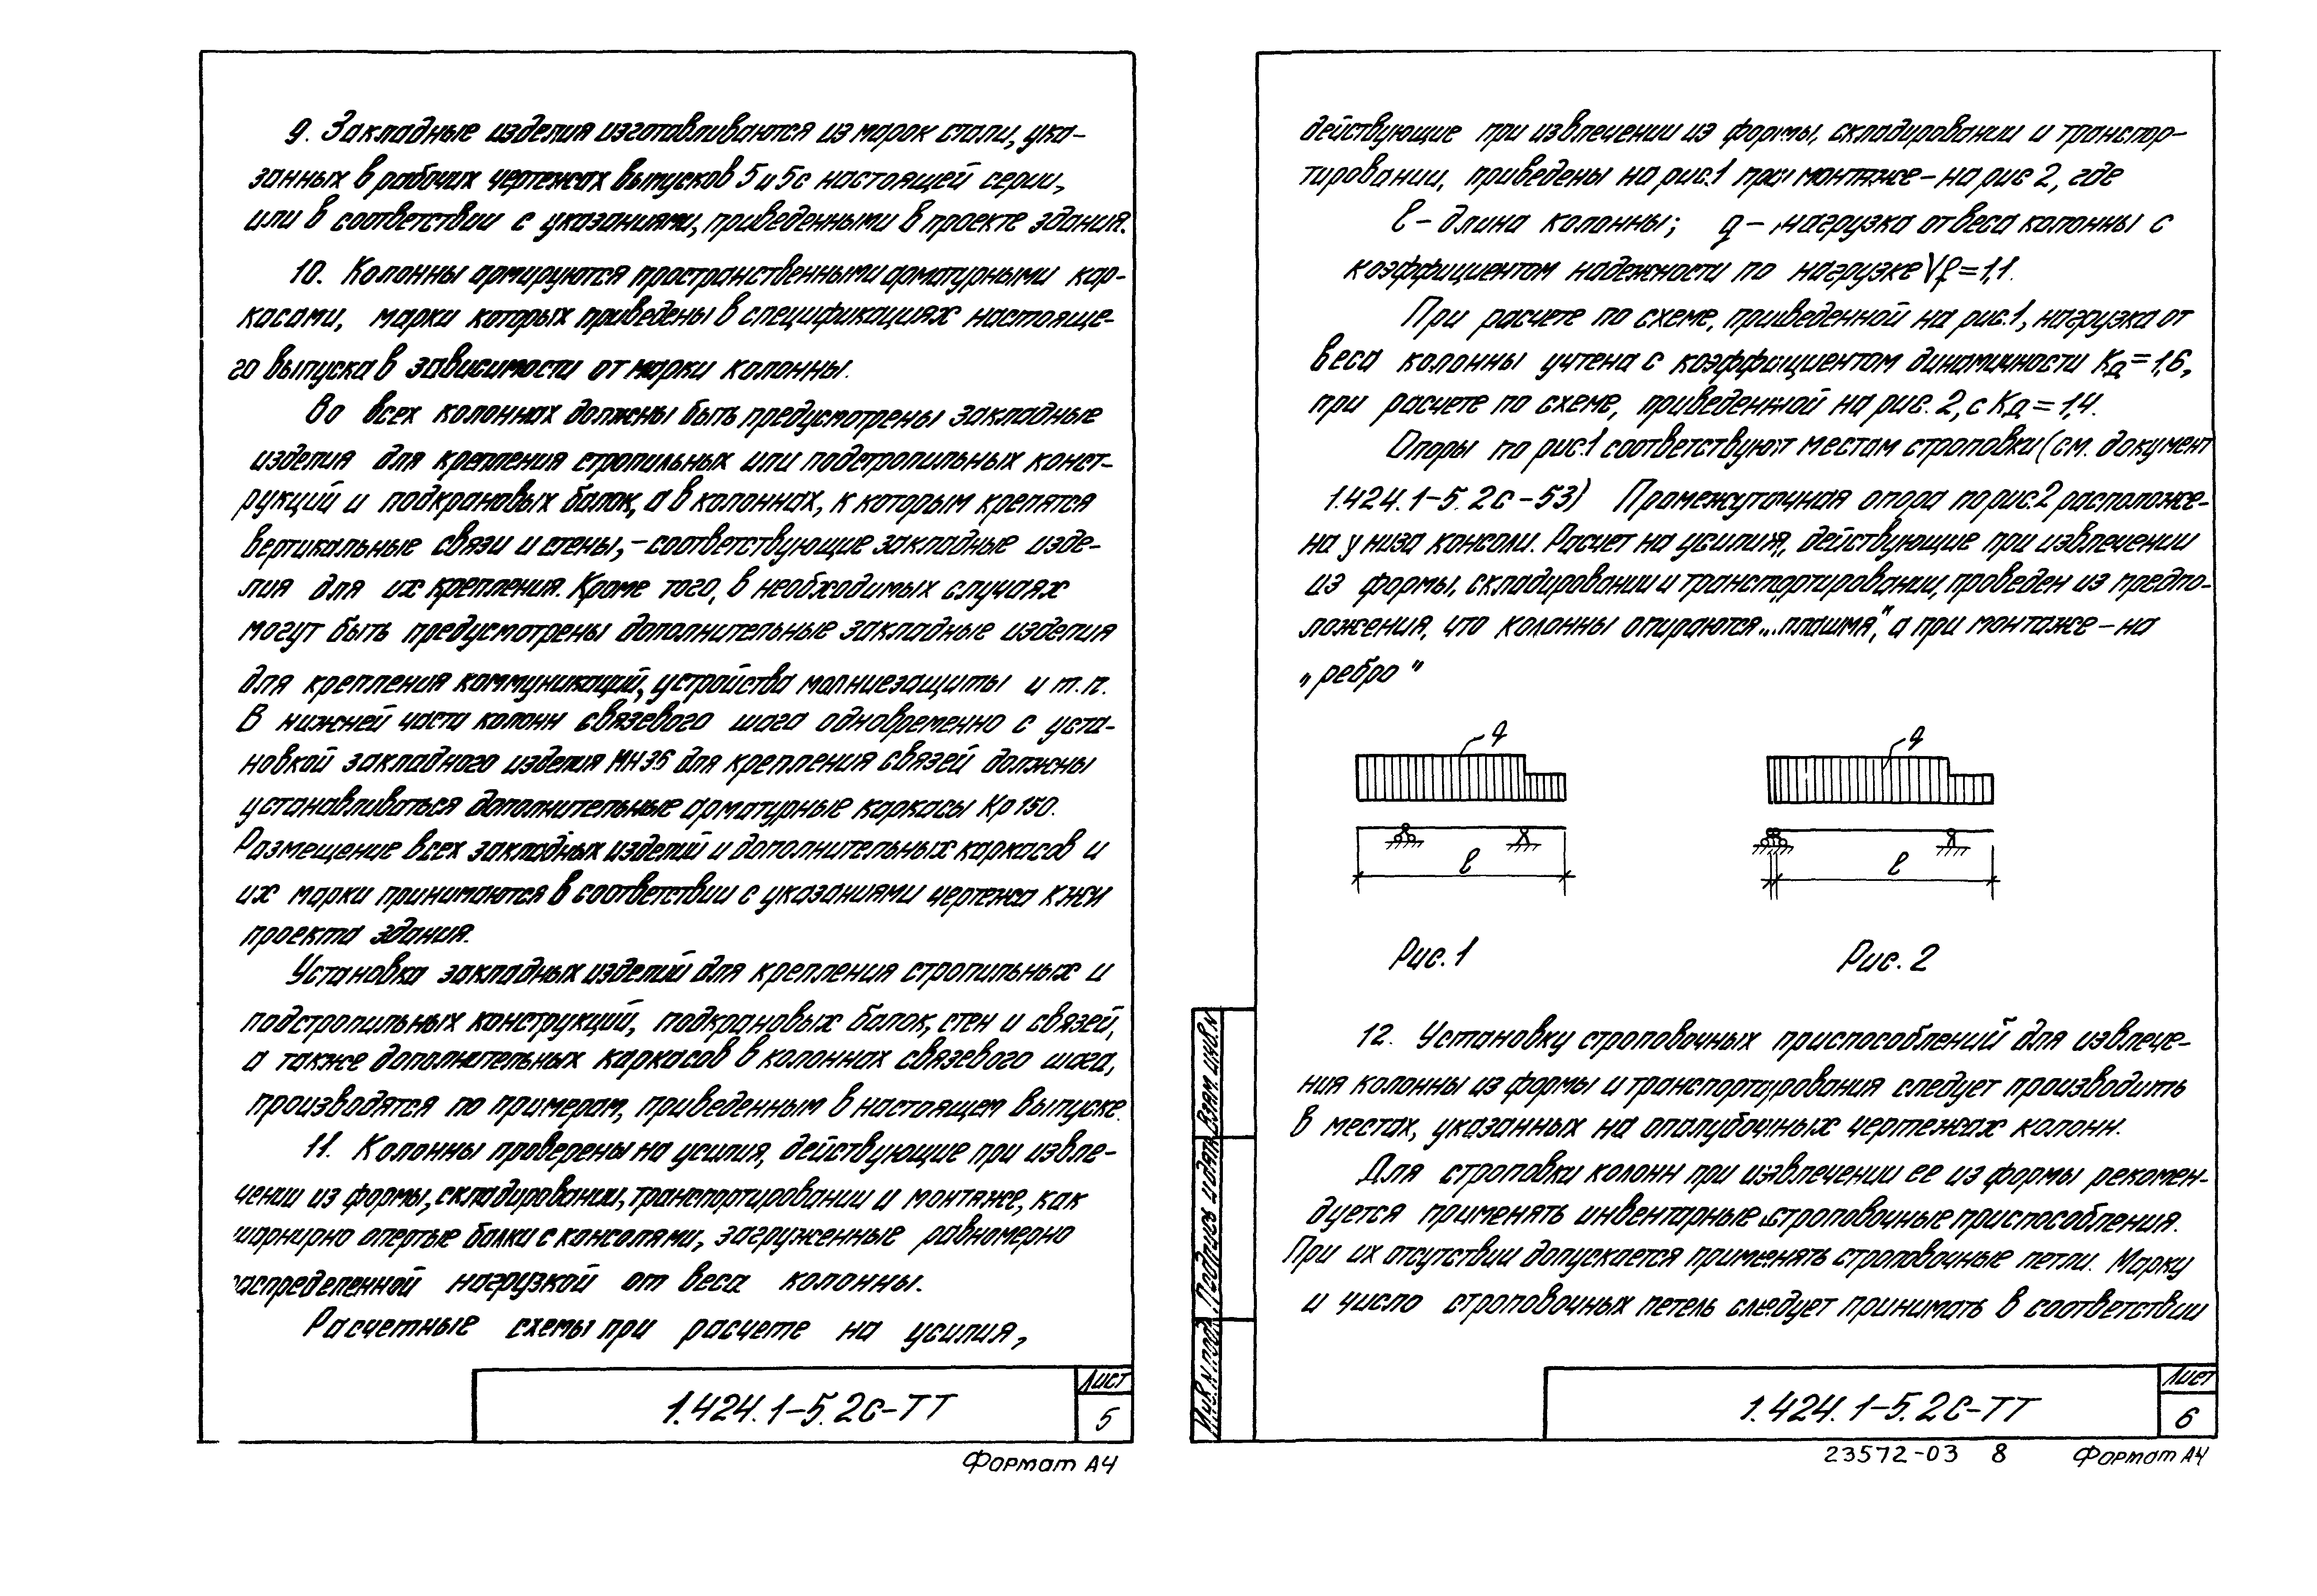 9. Закладные изделия изготавливаются из марок стали, ука-
занных в рабочих чертежах выпусков 5 и 5с настоящей серии,
или в соответствии с указаниями, приведенными в проекте здания.
10. Колонны армируются пространственными арматурными кар-
касами, марки которых приведены в спецификациях настояще-
го выпуска в зависимости от марки колонны.
Во всех колоннах должны быть предусмотрены закладные
изделия для крепления стропильных или подстропильных конст-
рукций и подкрановых балок, а в колоннах, к которым крепятся
вертикальные связи и стены, – соответствующие закладные изде-
лия для их крепления. Кроме того, в необходимых случаях
могут быть предусмотрены дополнительные закладные изделия
для крепления коммуникаций, устройства молниезащиты и т.п.
В нижней части колонн связевого шага одновременно с уста-
новкой закладного изделия МН36 для крепления связей должны
устанавливаться дополнительные арматурные каркасы Кр150.
Размещение всех закладных изделий и дополнительных каркасов и
их марки принимаются в соответствии с указаниями чертежа КЖИ
проекта здания.
Установка закладных изделий для крепления стропильных и
подстропильных конструкций, подкрановых балок, стен и связей,
а также дополнительных каркасов в колоннах связевого шага,
производятся по примерам, приведенным в настоящем выпуске.
11. Колонны проверены на усилия, действующие при извле-
чении из формы, складировании, транспортировании и монтаже, как
шарнирно опертые балки с консолями, загруженные равномерно
распределенной нагрузкой от веса колонны.
Расчетные схемы при расчете на усилия,
1.424.1–5.2С–ТТ
Лист
5
Формат А4
действующие при извлечении из формы, складировании и транспор-
тировании, приведены на рис.1 при монтаже – на рис 2, где
ℓ – длина колонны; q – нагрузка от веса колонны с
коэффициентом надежности по нагрузке γf = 1,1.
При расчете по схеме, приведенной на рис.1, нагрузка от
веса колонны учтена с коэффициентом динамичности Кд = 1,6,
при расчете по схеме, приведенной на рис. 2, с Кд = 1,4.
Опоры по рис.1 соответствуют местам строповки (см. документ
1.424.1–5.2С–53) Промежуточная опора по рис.2 расположе-
на у низа консоли. Расчет на усилия, действующие при извлечении
из формы, складировании и транспортировании, проведен из предпо-
ложения, что колонны опираются „плашмя", а при монтаже – на
„ребро"
q
ℓ
Рис. 1
q
ℓ
Рис. 2
12. Установку строповочных приспособлений для извлече-
ния колонны из формы и транспортирования следует производить
в местах, указанных на опалубочных чертежах колонн.
Для строповки колонн при извлечении ее из формы рекомен-
дуется применять инвентарные строповочные приспособления.
При их отсутствии допускается применять строповочные петли. Марку
и число строповочных петель следует принимать в соответствии
Взам. инв.N
Подпись и дата
Инв.N подл.
1.424.1–5.2С–ТТ
Лист
6
23572-03 8
Формат А4